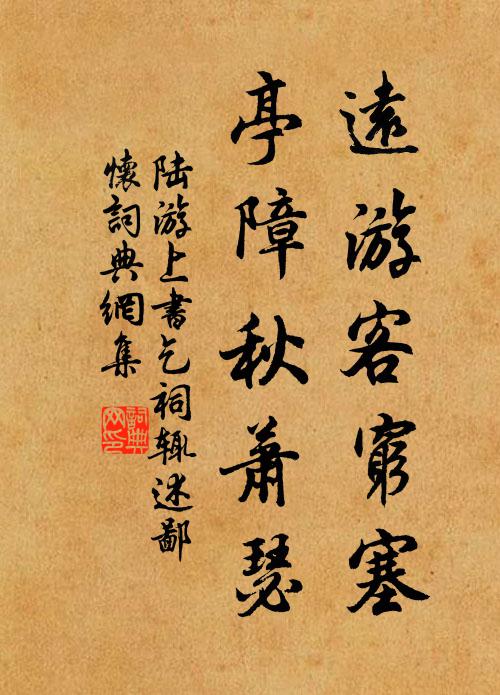 遠游客窮塞
亭障秋蕭瑟
陸游上書乞祠輒述鄙
懷詞典網集
詞典
网印